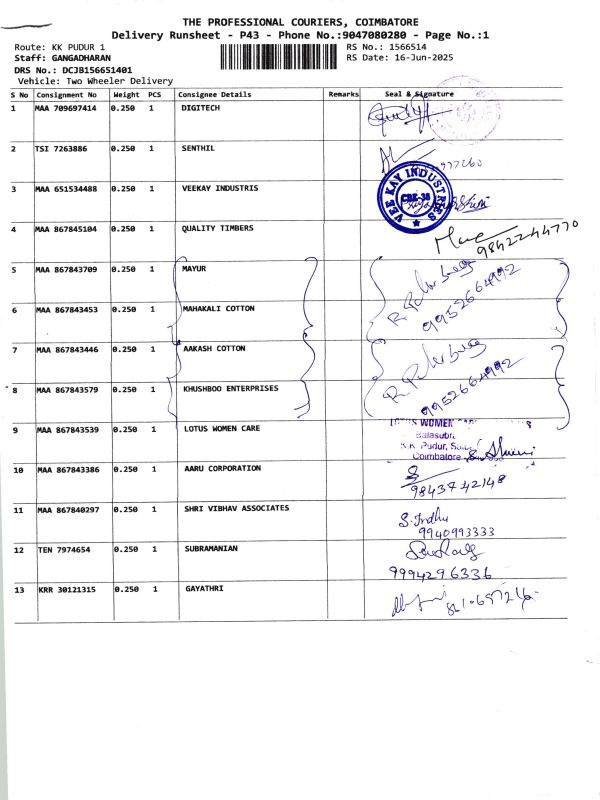 THE PROFESSIONAL COURIERS, COIMBATORE
Delivery Runsheet - P43 - Phone No.:9047080280 - Page No.:1
Route: KK PUDUR 1 RS No.: 1566514
Staff: GANGADHARAN RS Date: 16-Jun-2025
DRS No.: DCJB156651401
Vehicle: Two Wheeler Delivery
S No Consignment No Weight PCS Consignee Details Remarks Seal & Signature
1 MAA 709697414 0.250 1 DIGITECH
2 TSI 7263886 0.250 1 SENTHIL
3 MAA 651534488 0.250 1 VEEKAY INDUSTRIS VEE KAY INDUSTRIES CBE-38
4 MAA 867845104 0.250 1 QUALITY TIMBERS
9842244770
5 MAA 867843709 0.250 1 MAYUR
9952664992
6 MAA 867843453 0.250 1 MAHAKALI COTTON
7 MAA 867843446 0.250 1 AAKASH COTTON
8 MAA 867843579 0.250 1 KHUSHBOO ENTERPRISES
9952664992
9 MAA 867843539 0.250 1 LOTUS WOMEN CARE LOTUS WOMEN
K.K. Pudur,
Coimbatore
10 MAA 867843386 0.250 1 AARU CORPORATION
9843742148
11 MAA 867840297 0.250 1 SHRI VIBHAV ASSOCIATES
S. Indhu
9940993333
12 TEN 7974654 0.250 1 SUBRAMANIAN
9994296336
13 KRR 30121315 0.250 1 GAYATHRI